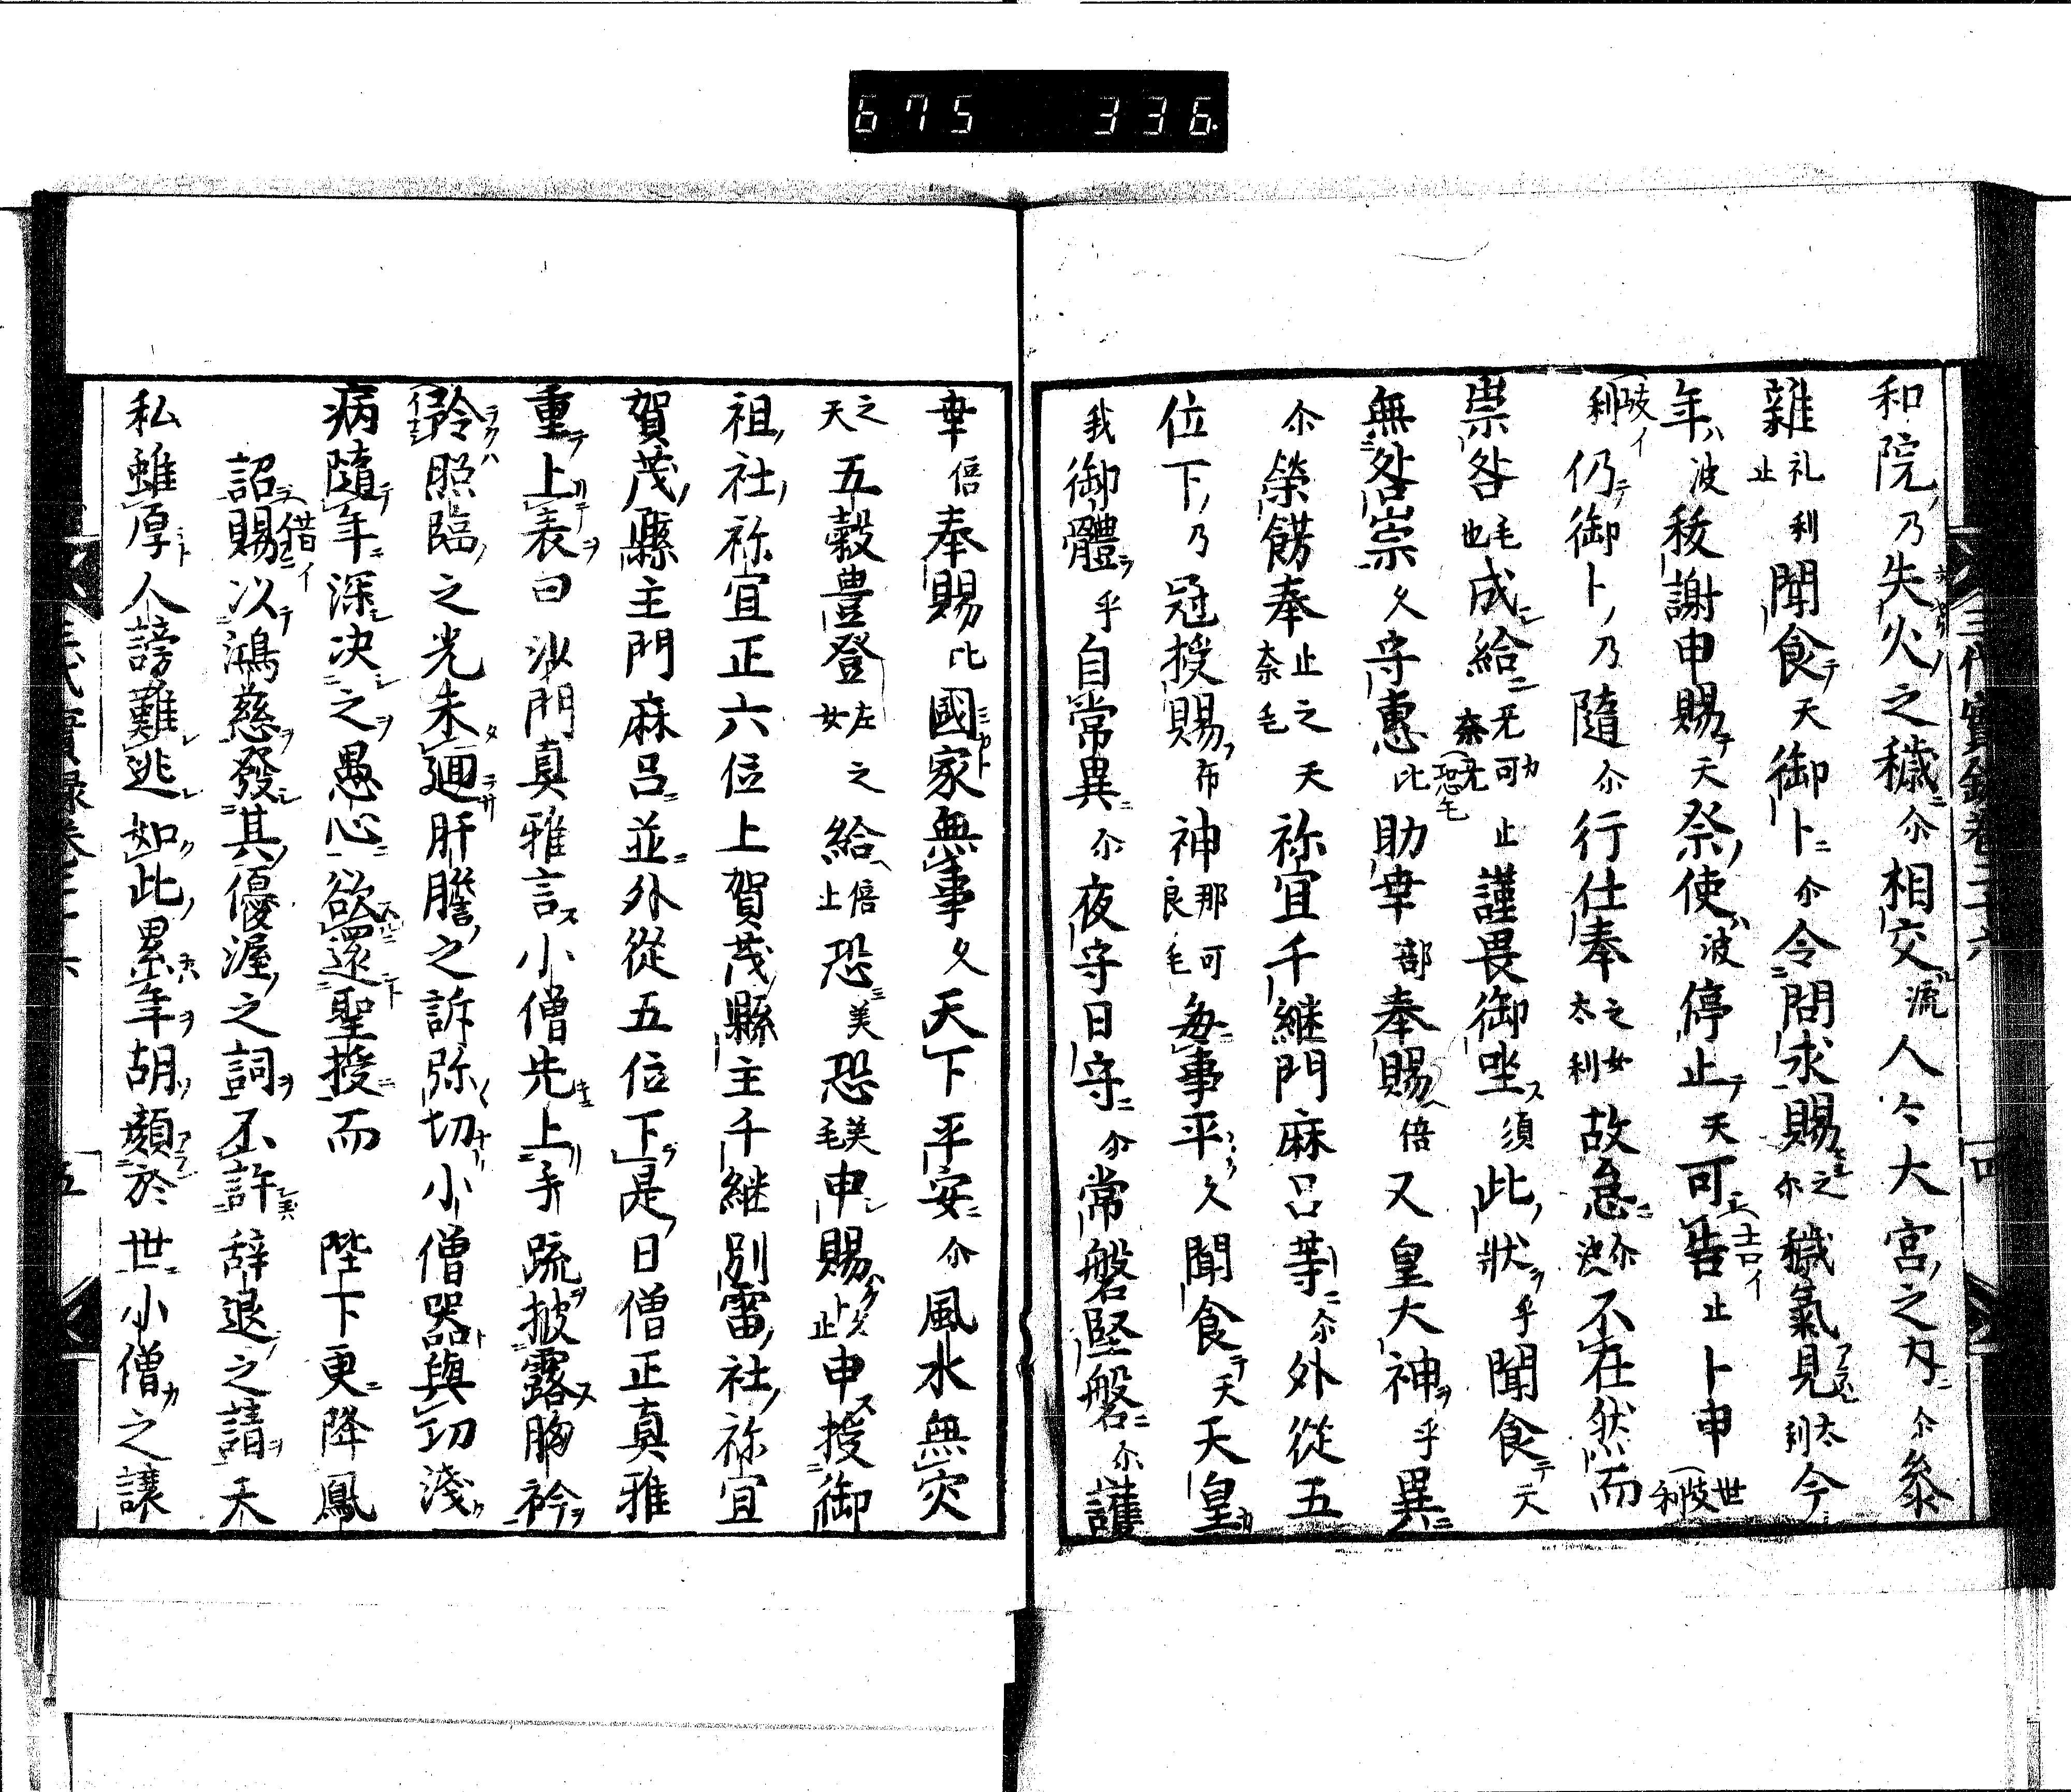 675 336
三代實錄卷二十六 四
和院乃失火之穢尓相交流人々大宮之内尓參
雜礼止利聞食天御卜尓令問求賜之尓穢氣見太利今
年波秡謝申賜天祭使波停止天可告止卜申世
利仍御卜乃隨尓行仕奉之女太利故急尓波不在然而
祟咎毛也成給无可止謹畏御坐須此狀乎聞食天
無咎崇久守惠比助幸部奉賜倍又皇大神乎異
尓榮餝奉止之天奈毛祢宜千継門麻呂等尓外從五
位下乃冠授賜布神那良可毛毎事平久聞食天天皇
我御體乎自常異尓夜守日守尓常磐堅磐尓護
幸倍奉賜比國家無事久天下平安尓風水無灾
之天五穀豊登左女之給倍止恐美恐美毛申賜久止申授御
祖社祢宜正六位上賀茂縣主千継別雷社祢宜
賀茂縣主門麻呂並外從五位下是日僧正真雅
重上表曰沙門真雅言小僧先上手䟽披露胸衿
照臨之光未廻肝膽之訴弥切小僧器與功淺
病隨年深决之愚心欲還聖授而 陛下更降鳳
詔賜以鴻慈發其優渥之詞不許辞退之請天
私雖厚人謗難逃如此累年胡顔於世小僧之讓
三代實録卷二十六 五